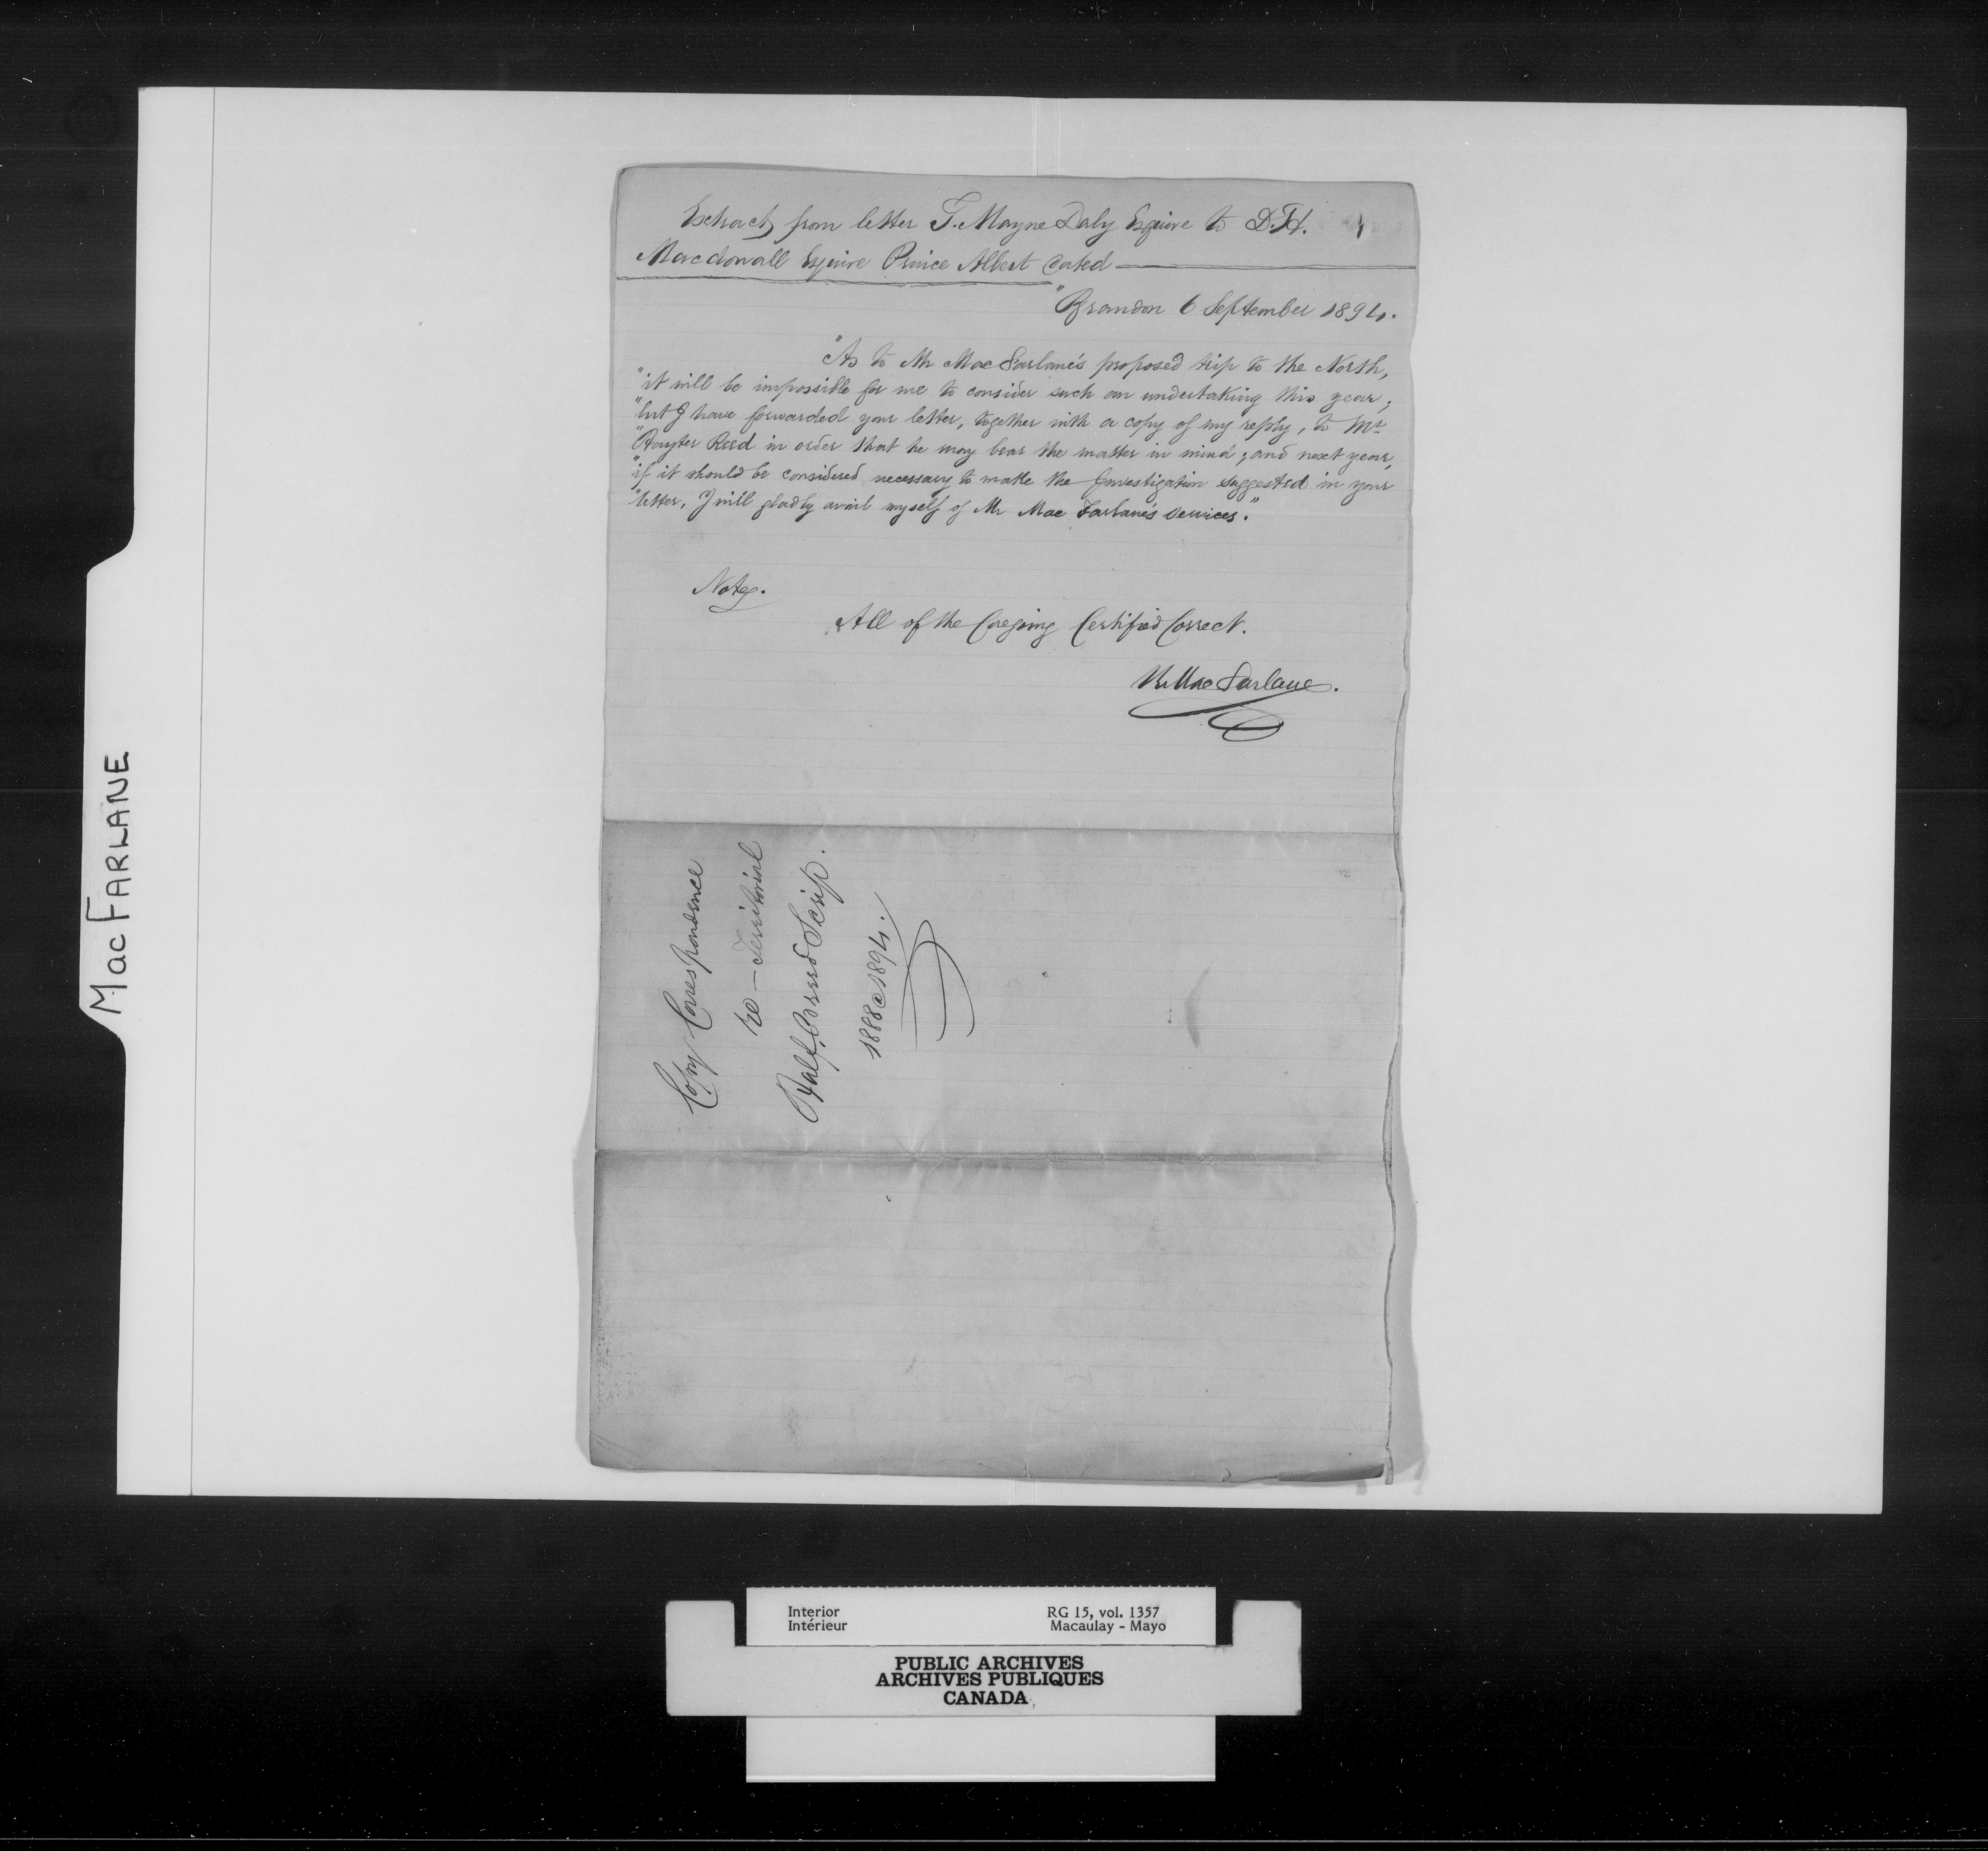 Extract from letter T. Mayne Daly Esquire to D.H.
Macdowall Esquire Prince Albert dated —
"Brandon 6 September 1894.
"As to Mr MacFarlane's proposed trip to the North,
"it will be impossible for me to consider such an undertaking this year;
"but I have forwarded your letter, together with a copy of my reply, to Mr
"Hayter Reed in order that he may bear the matter in mind; and next year,
"if it should be considered necessary to make the Investigation suggested in your
"letter, I will gladly avail myself of Mr Mac Farlane's services."
Note.
All of the foregoing Certified Correct.
R. MacFarlane.
Copy Correspondence
re — Territorial
Half Breed Scrip.
1888 @ 1894.
MacFARLANE
Interior RG 15, vol. 1357
Intérieur Macaulay - Mayo
PUBLIC ARCHIVES
ARCHIVES PUBLIQUES
CANADA